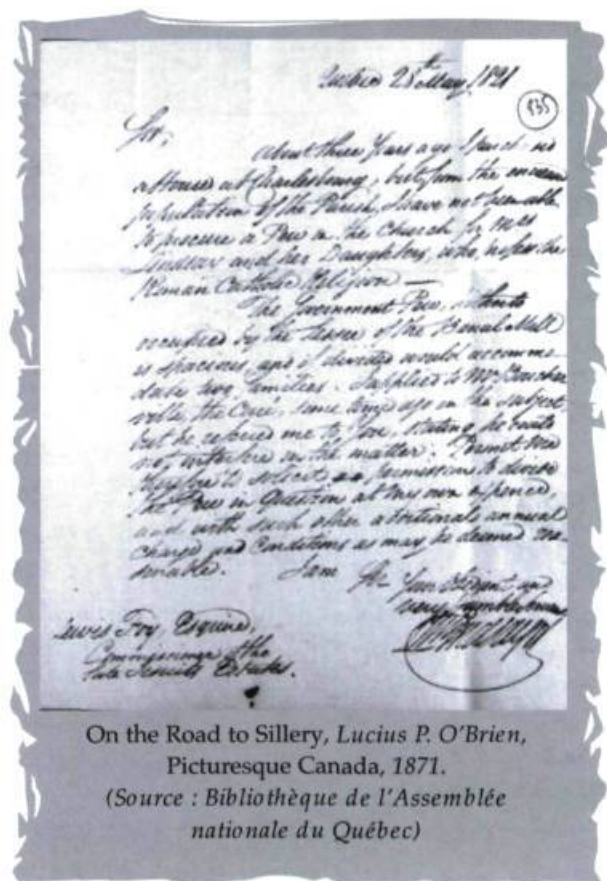 Quebec 28th May, 1821
835
Sir,
About three Years ago I purch
a House at Charlesbourg, but from the
population of the Parish, I have not been able
to procure a Pew in the Church for Mrs
Lindsay and her Daughters, who profess the
Roman Catholic Religion —
The Government Pew,
occupied by the Lessee of the Banal Mill
is spacious, and if divided would accommo-
date two families. I applied to Mr Boucher
ville, the Curé, some time ago on the subject
but he referred me to You, stating he could
not interfere in the matter. Permit me
therefore to solicit permission to divide
the Pew in Question at my own expence,
and with such other additional annual
Charge and Conditions as may be deemed rea-
sonable. I am Sir Your Obedient and
very humble
Lewis Foy, Esquire,
Commissioner of the
late Jesuits Estates.
On the Road to Sillery, Lucius P. O'Brien,
Picturesque Canada, 1871.
(Source : Bibliothèque de l'Assemblée
nationale du Québec)